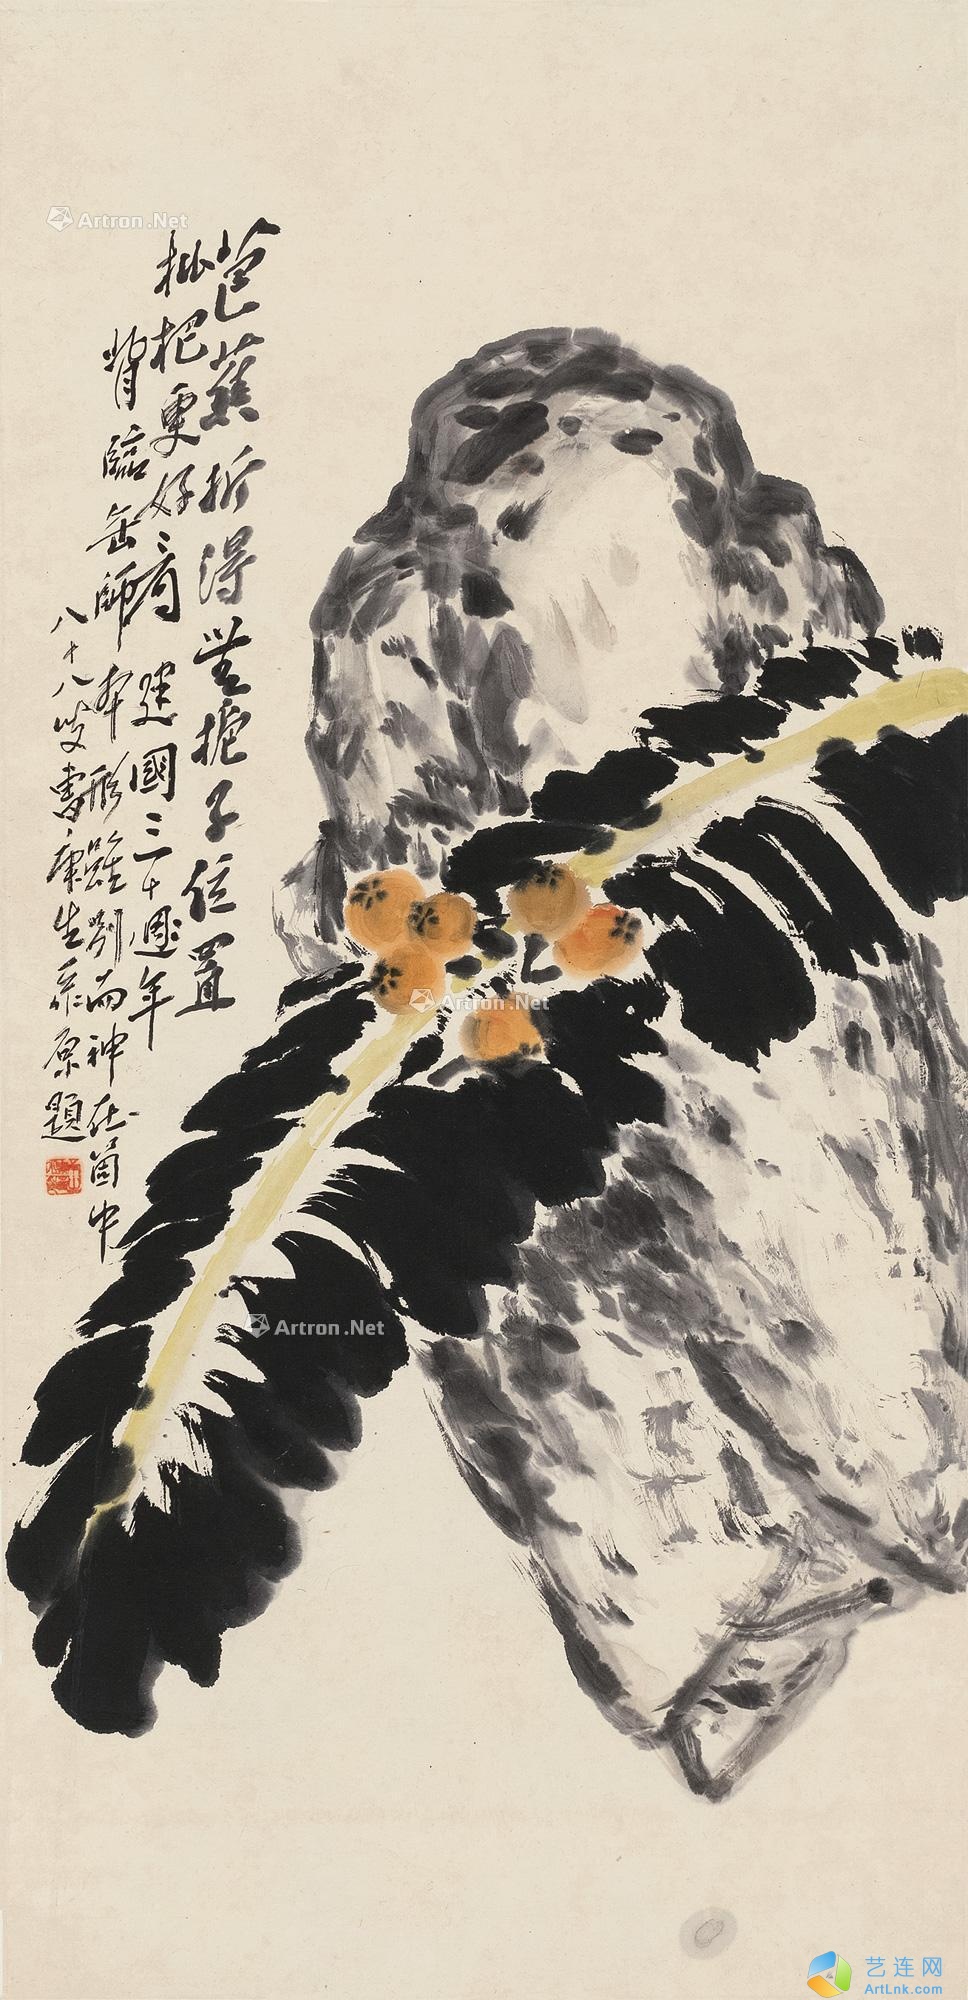 芭蕉折得觉栀子位置
枇杷更好看 建國三十週年
背臨缶師本 形雖別而神在箇中
八十八叟曹庸生 原題
Artron.Net
Artron.Net
Artron.Net
艺连网
ArtLnk.com